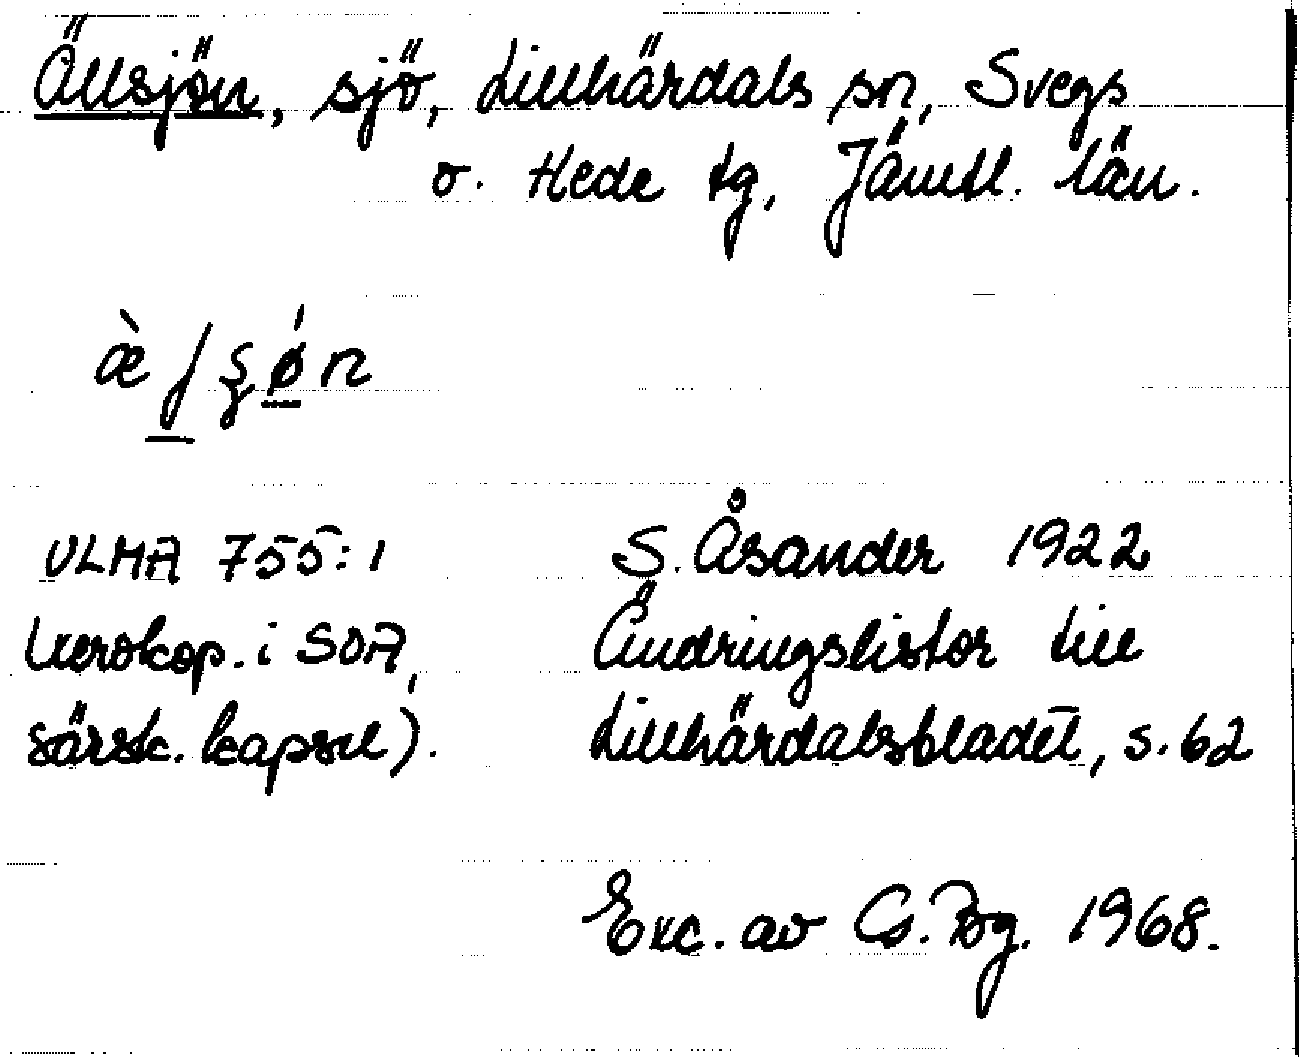 Ällsjön, sjö, Lillhärdals sn, Svegs
o. Hede tg, Jämtl. län.
ULMA 755:1
S. Åsander 1922
(xerokop. i SOA,
Ändringslistor till
särsk. kapsel).
Lillhärdalsbladet, s. 62
Exc. av G. Bg. 1968.